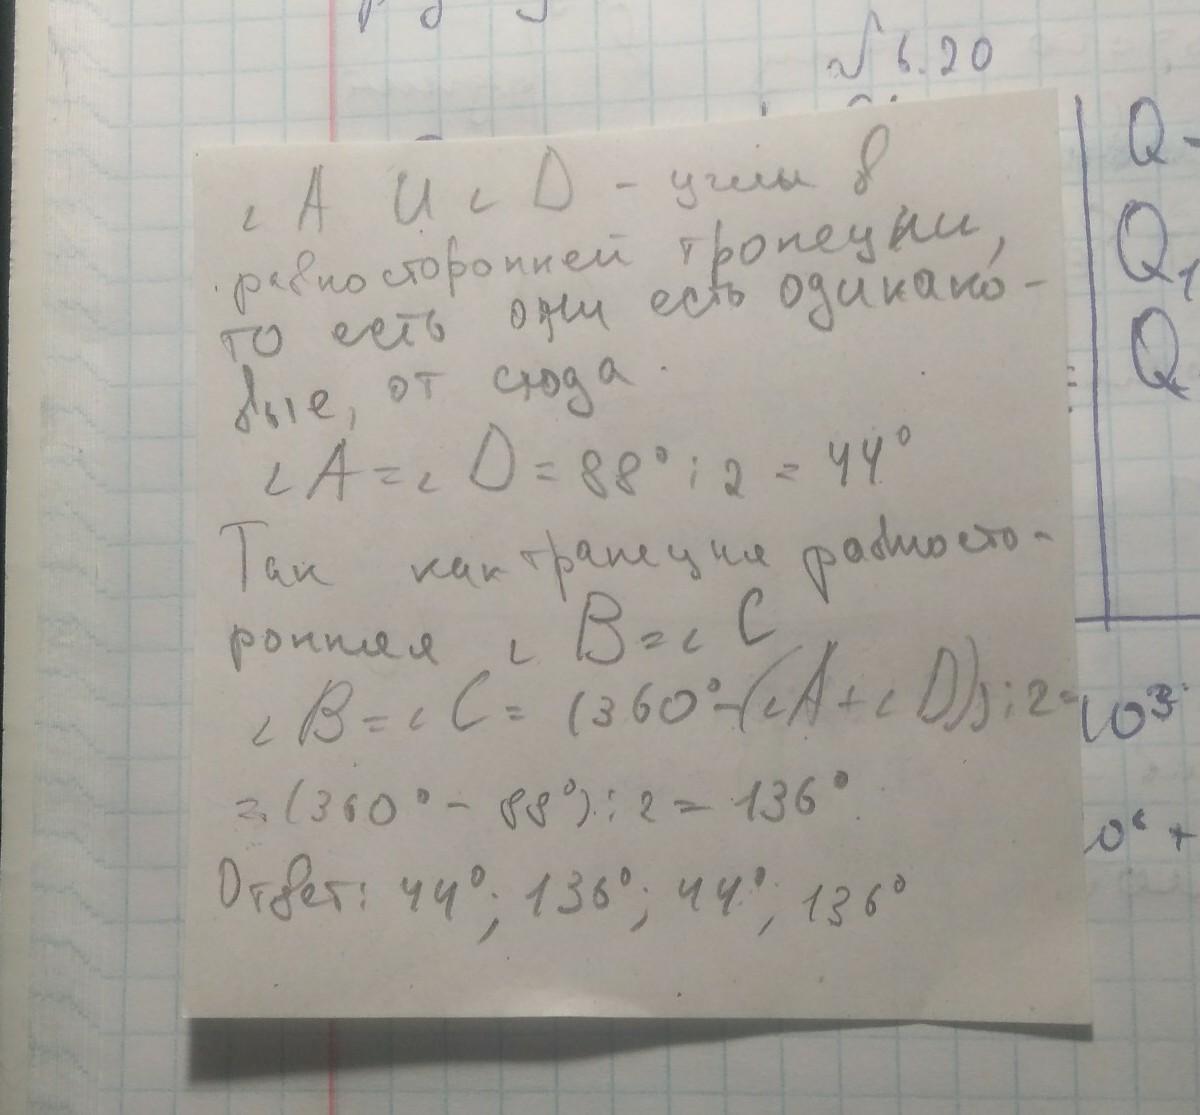 √ 6.20
∠A и ∠D - углы в
равносторонней тропеции,
то есть они есть одинако-
вые, от сюда.
∠A=∠D=88°:2=44°
Так как трапеция равносто-
ронняя ∠B=∠C
∠B=∠C=(360°-(∠A+∠D)):2=
=(360°-88°):2=136°
Ответ: 44°; 136°; 44°; 136°
Q-
Q1
Q
10³
0⁶+